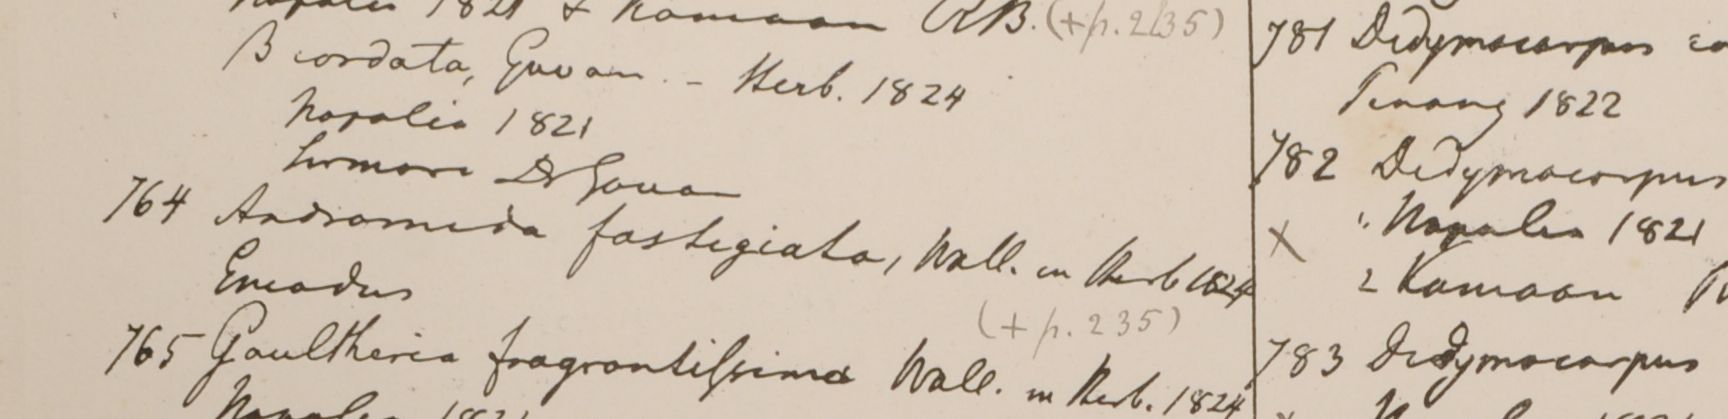 Napalia 1821 & Kamaon RB. (+ p. 235)
β cordata, Govan. - Herb. 1824
Napalia 1821
Sirmore Dr Govan
764 Andromeda fastigiata, Wall. in Herb 1824
Emodus
(+ p. 235)
765 Gaultheria fragrantissima Wall. in Herb. 1824
Napalia 1821
781 Didymocarpus
Penang 1822
782 Didymocarpus
1. Napalia 1821
X
2 Kamaon
783 Didymocarpus